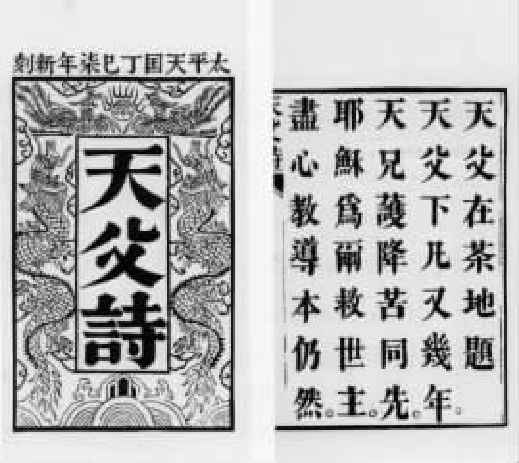 太平天囯丁巳柒年新刻
天父詩
天父在茶地題
天父下凡又幾年。
天兄護降苦同先。
耶穌爲爾救世主。
盡心教導本仍然。